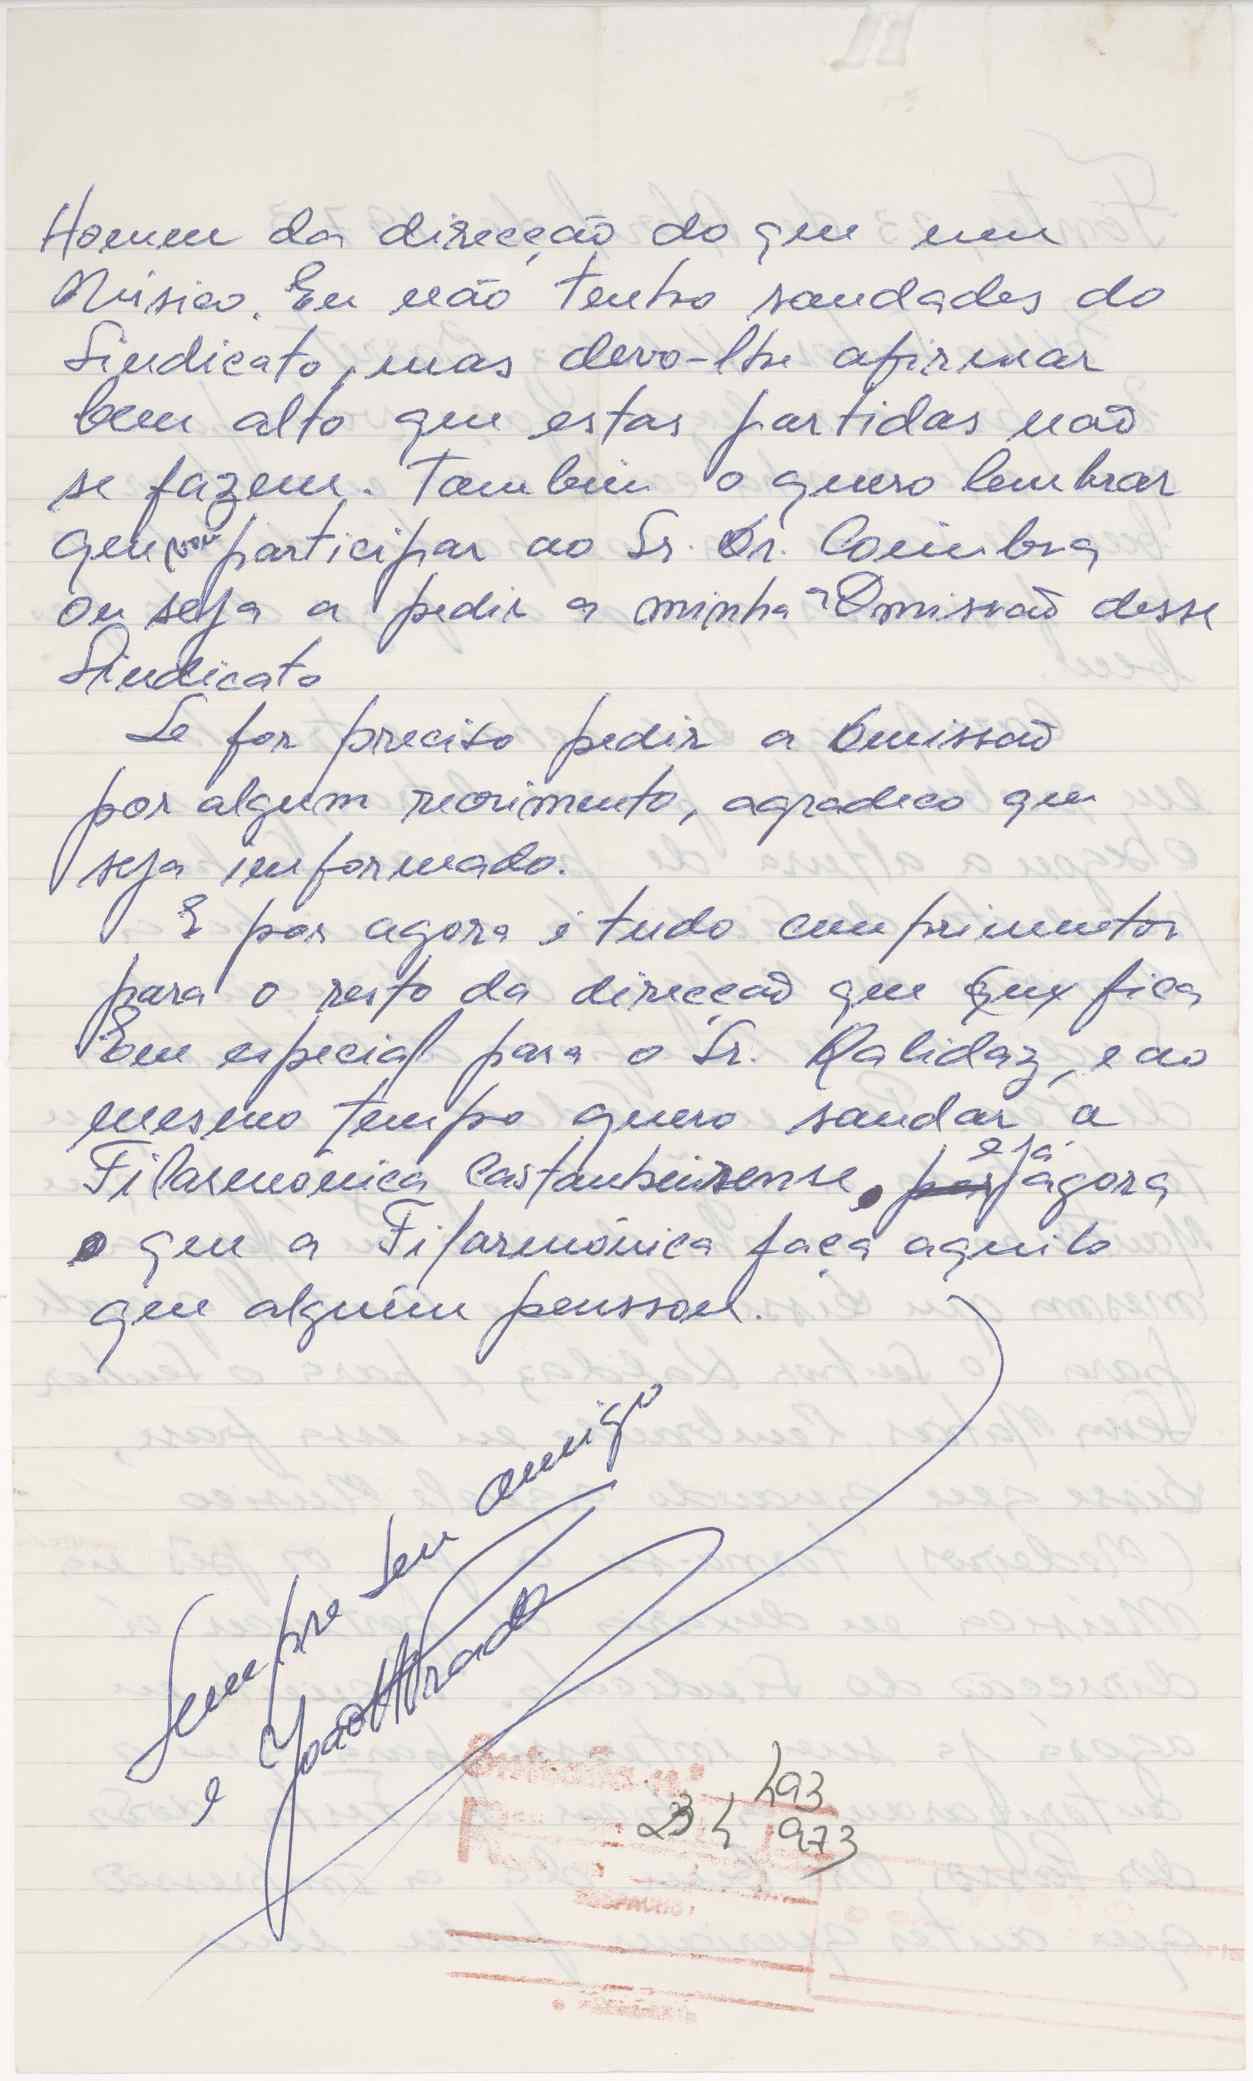 Homem da direcção do que um
Músico. Eu não tenho saudades do
Sindicato, mas devo-lhe afirmar
bem alto que estas partidas não
se fazem. Também o quero lembrar
que vou participar ao Sr. Dr. Coimbra
ou seja a pedir a minha Omissão desse
Sindicato
Se for preciso pedir a Omissão
por algum recrimento, agradeco que
seja informado.
E por agora é tudo cumprimetos
para o resto da direcção que que fica
Em especial para o Sr. Kalidaz, e ao
mesmo tempo quero saudar a
Filarmónica Castanheirense, e já agora
que a Filarmónica faça aquilo
que alguém penssou.
Sempre Seu amigo
e João Prado
493
23 4 973